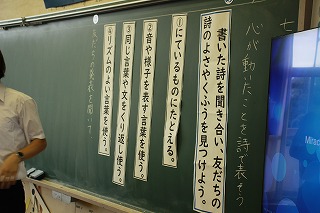 心が動いたことを詩で表そう
書いた詩を聞き合い、友だちの
詩のよさやくふうを見つけよう。
①にているものにたとえる。
②音や様子を表す言葉を使う。
③同じ言葉や文をくり返し使う。
④リズムのよい言葉を使う。
友だちの発表を聞いて